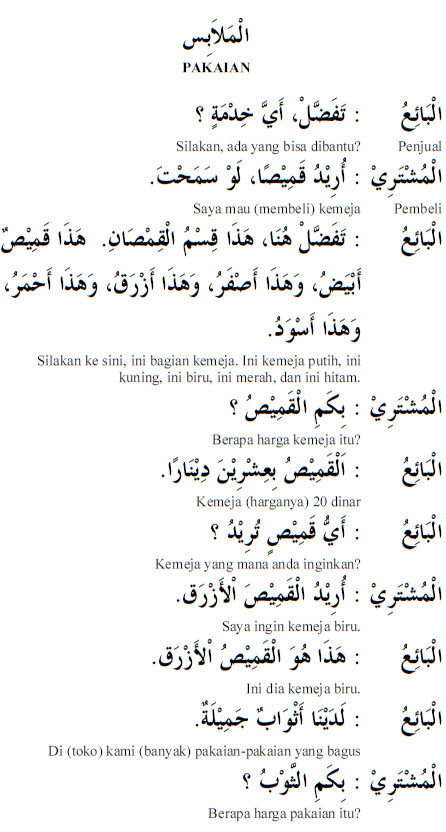 الْمَلاَبِس
PAKAIAN
الْبَائِعُ : تَفَضَّلْ، أَيَّ خِدْمَةٍ ؟
Silakan, ada yang bisa dibantu? Penjual
الْمُشْتَرِيْ : أُرِيْدُ قَمِيْصًا، لَوْ سَمَحْتَ.
Saya mau (membeli) kemeja Pembeli
الْبَائِعُ : تَفَضَّلْ هُنَا، هَذَا قِسْمُ الْقِمْصَانِ. هَذَا قَمِيْصٌ
أَبْيَضُ، وَهَذَا أَصْفَرُ، وَهَذَا أَزْرَقُ، وَهَذَا أَحْمَرُ،
وَهَذَا أَسْوَدُ.
Silakan ke sini, ini bagian kemeja. Ini kemeja putih, ini
kuning, ini biru, ini merah, dan ini hitam.
الْمُشْتَرِيْ : بِكَمِ الْقَمِيْصُ ؟
Berapa harga kemeja itu?
الْبَائِعُ : اَلْقَمِيْصُ بِعِشْرِيْنَ دِيْنَارًا.
Kemeja (harganya) 20 dinar
الْبَائِعُ : أَيُّ قَمِيْصٍ تُرِيْدُ ؟
Kemeja yang mana anda inginkan?
الْمُشْتَرِيْ : أُرِيْدُ الْقَمِيْصَ الْأَزْرَقَ.
Saya ingin kemeja biru.
الْبَائِعُ : هَذَا هُوَ الْقَمِيْصُ الْأَزْرَقُ.
Ini dia kemeja biru.
الْبَائِعُ : لَدَيْنَا أَثْوَابٌ جَمِيْلَةٌ.
Di (toko) kami (banyak) pakaian-pakaian yang bagus
الْمُشْتَرِيْ : بِكَمِ الثَّوْبُ ؟
Berapa harga pakaian itu?